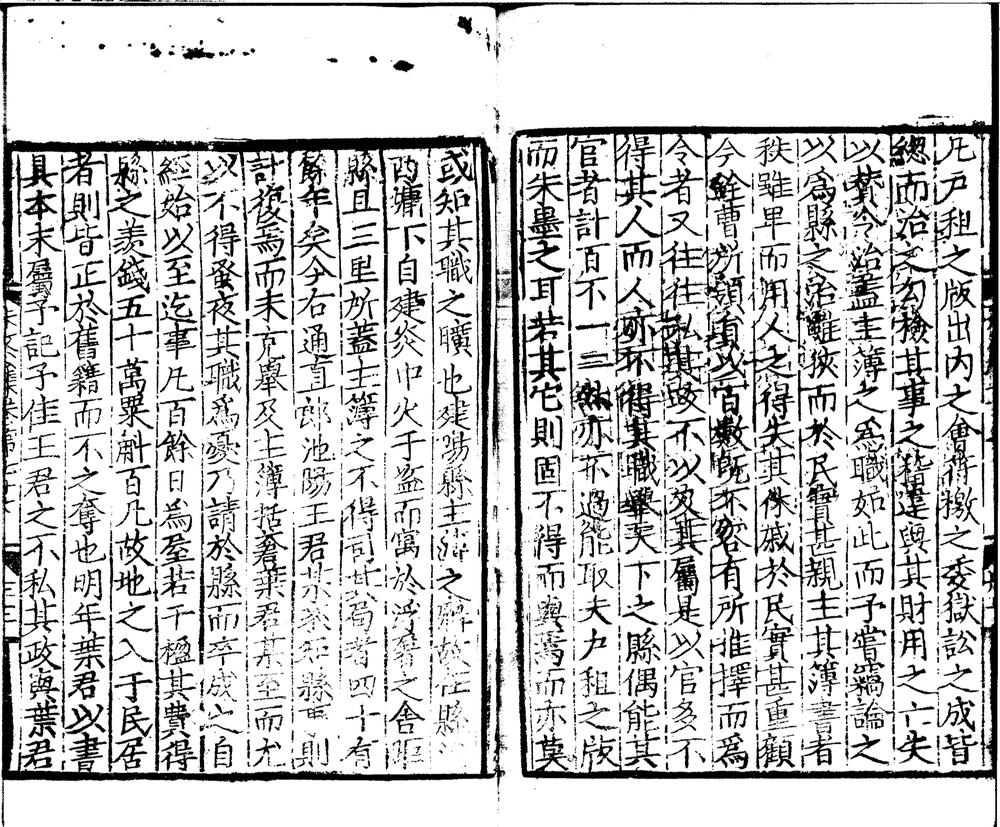 凡戶租之版出內之會符檄之委獄訟之成皆
總而治之勾檢其事之稽違與其財用之亡失
以贊令治蓋主簿之為職如此而予嘗竊論之
以為縣之治雖狹而於民實甚親主其簿書者
秩雖卑而用人之得失其休戚於民實甚重顧
今銓曹所領員以百數既不容有所推擇而為
令者又往往私其政不以及其屬是以官多不
得其人而人亦不得其職舉天下之縣偶能其
官者計百不一二然亦不過能取夫戶租之版
而朱墨之耳若其它則固不得而與焉而亦莫
或知其職之曠也建陽縣主簿之廨故在縣
西牖下自建炎中火于盜而寓於浮屠之舍距
縣且三里所蓋主簿之不得司其局者四十有
餘年矣今右通直郎池陽王君某來知縣事則
計復焉而未克舉及主簿括蒼葉君某至而尤
以不得蚤夜其職為憂乃請於縣而卒成之自
經始以至迄事凡百餘日為屋若干楹其費得
縣之羨錢五十萬粟斛百凡故地之入于民居
者則皆正於舊籍而不之奪也明年葉君以書
具本末屬予記予佳王君之不私其政與葉君